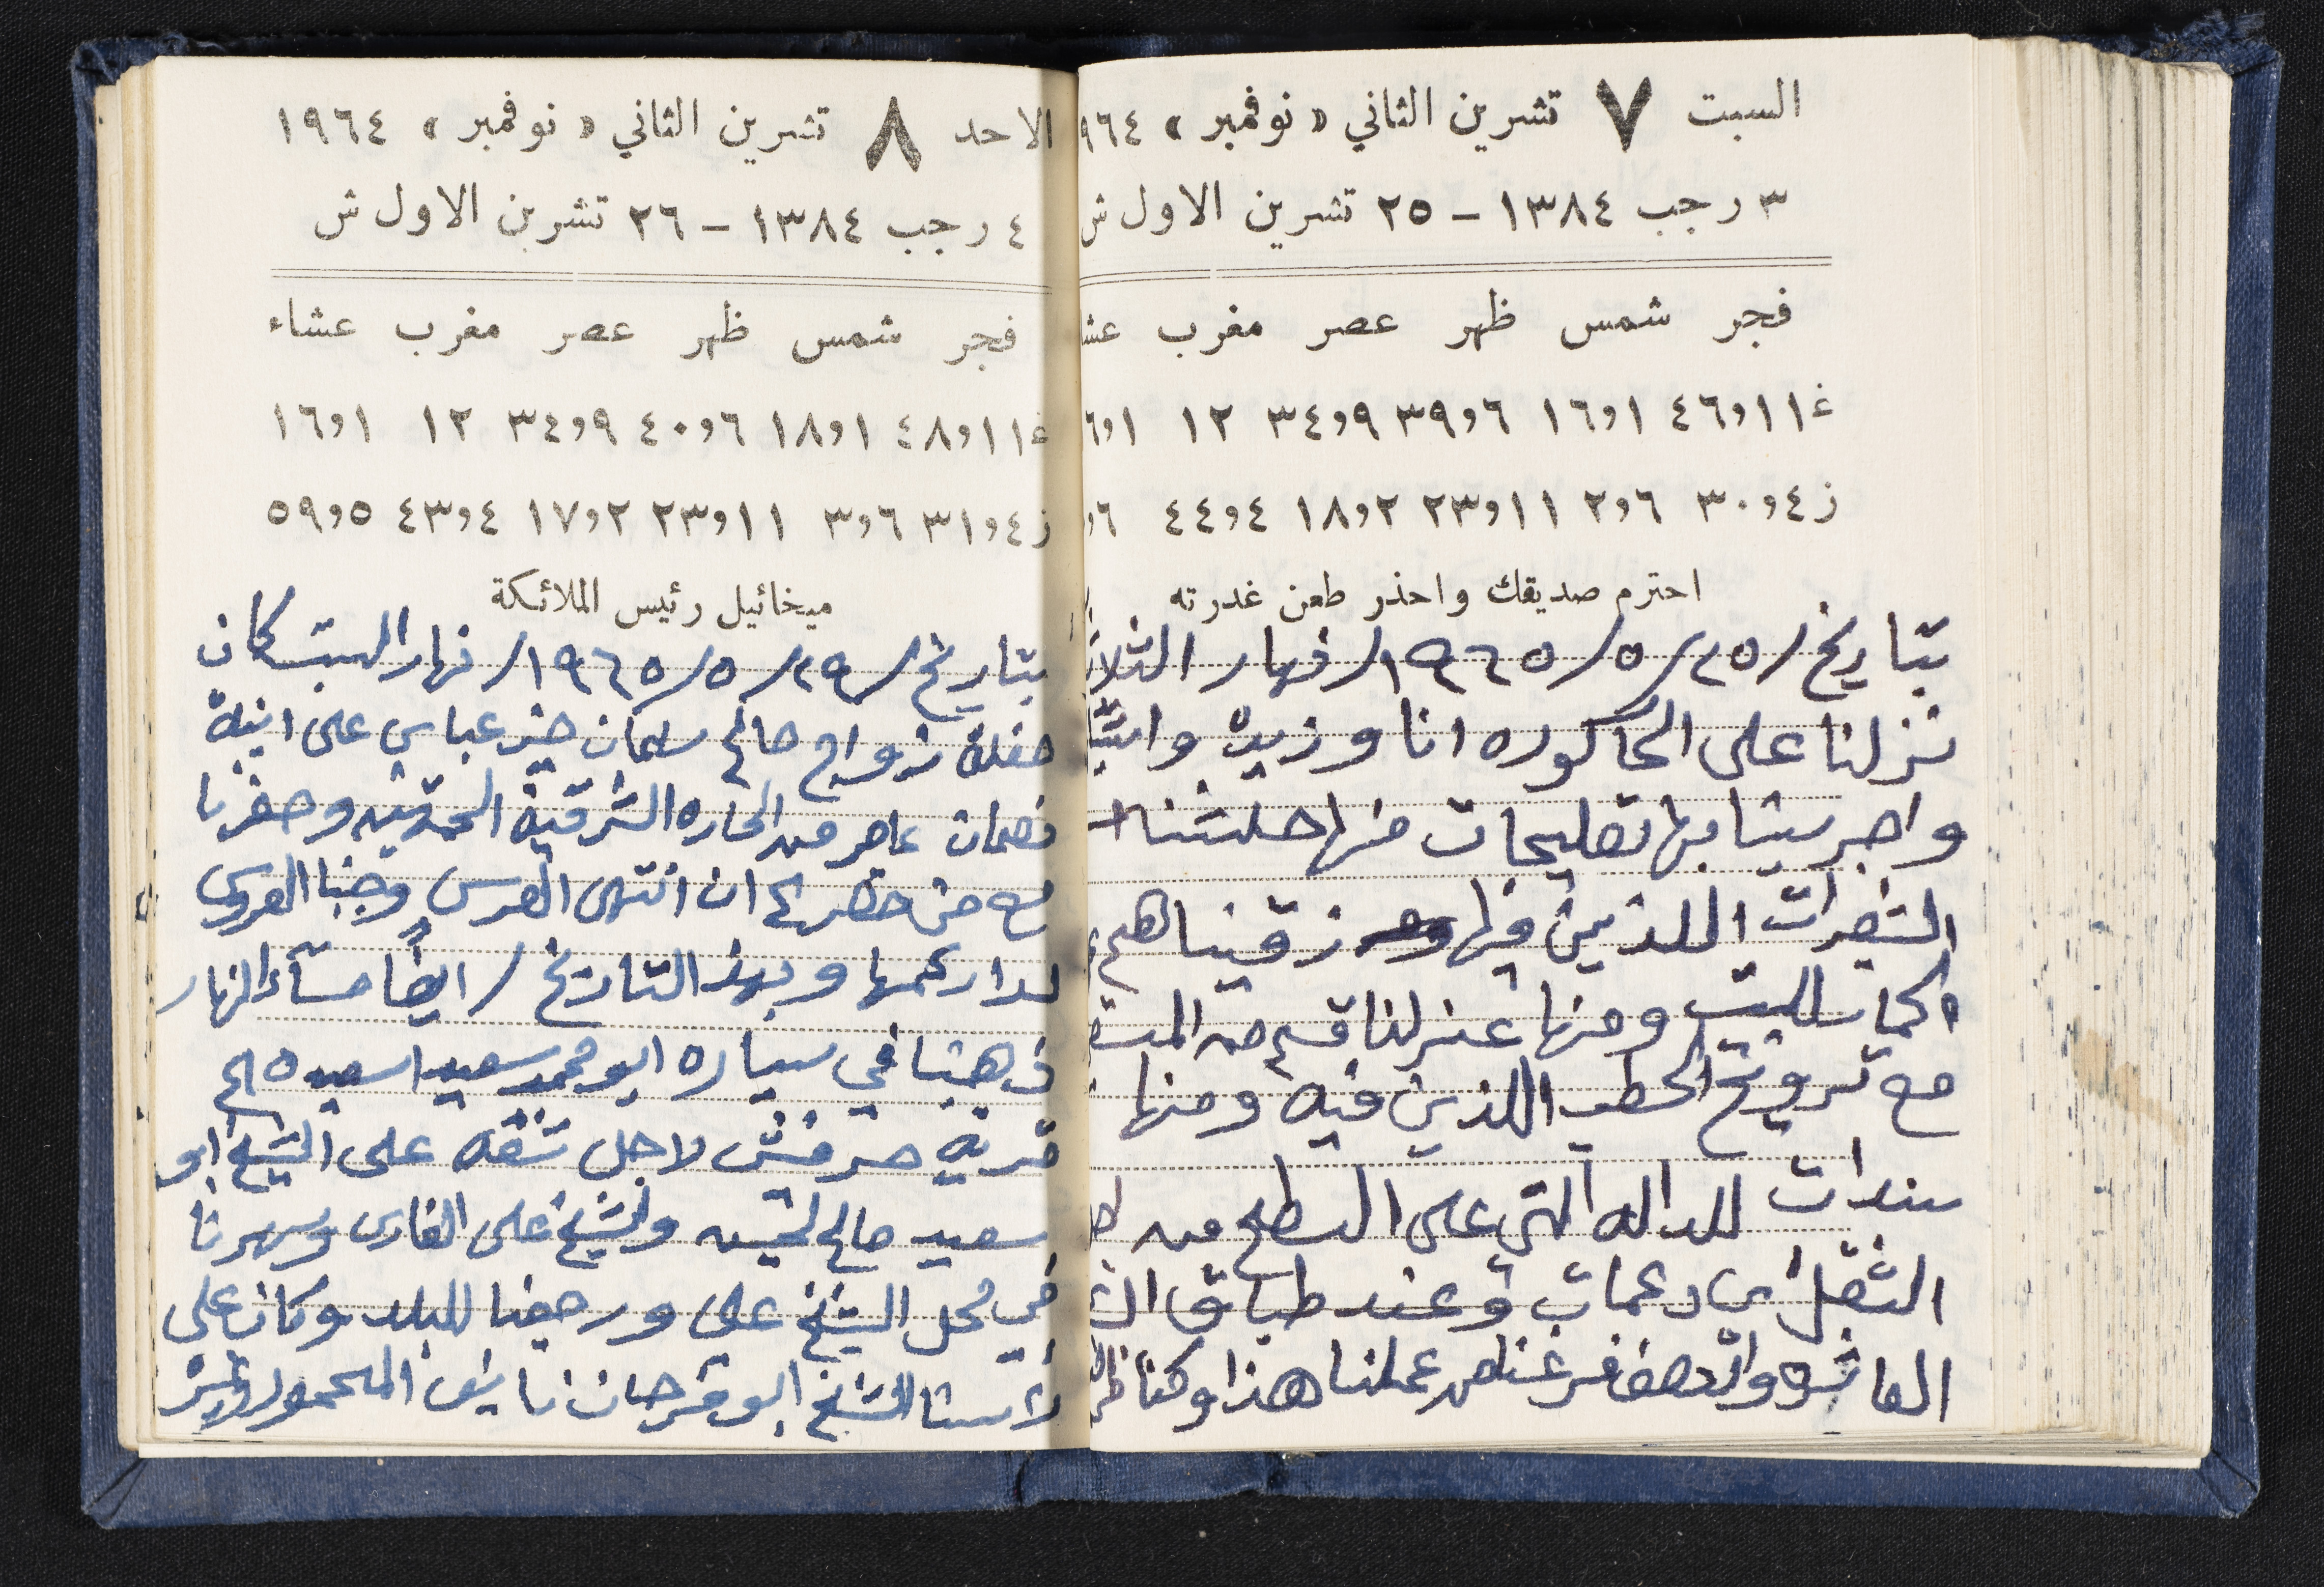 السبت ٧ تشرين الثاني « نوفمبر » ٩٦٤
٣ رجب ١٣٨٤ – ٢٥ تشرين الاول ش
فجر شمس ظهر عصر مغرب عشا
غ ١١و٤٦ ١و١٦ ٦و٣٩ ٩و٣٤ ١٢ ١و٦
ز ٤و٣٠ ٦و٢ ١١و٢٣ ٢و١٨ ٤و٤٤ ٦و
احترم صديقك واحذر طعن غدرته
بتاريخ /٢٥/٥/١٩٦٥/ نهار الثلاثا
نزلنا على الحاكوره انا وزيد
واجرينا بها تصليحات منها حلشنا
الشجرات اللذين فيها زقيناهم
للبيت ومنها عزلنا قسم من
مع ترويح الحطب اللذين فيه ومنها
سندات للداله التي على السطح من
الثقل اي دعمات وعند طباق
العاشره والنصف فرغنا من عملنا هذا وكنا
الاحد ٨ تشرين الثاني « نوفمبر » ١٩٦٤
٤ رجب ١٣٨٤ – ٢٦ تشرين الاول ش
فجر شمس ظهر عصر مغرب عشاء
غ ١١و٤٨ ١و١٨ ٦و٤٠ ٩و٣٤ ١٢ ١و١٦
ز ٤و٣١ ٦و٣ ١١و٢٣ ٢و١٧ ٤و٤٣ ٥و٥٩
ميخائيل رئيس الملائكة
بتاريخ /٢٩/٥/١٩٦٥/ نهار السبت كان
حفلة زواج صالح سلمان خير عباس على ابنة
عامر من الحاره الشرقية وحضرنا
مع من حضر الى ان انتهى العرس وجبنا العروس
لدار عمها وبهذ التاريخ / ايضاً مسآء النهار
ذهبنا في سياره ابو محمد سعيد اسعيد الى
قرية حرفش لاجل شقه على الشيخ ابو
سعيد صالح والشيخ على الفارس وسهرنا
في محل الشيخ علي ورجعنا للبلد وكان علي
الشيخ ابو فرحان نايف